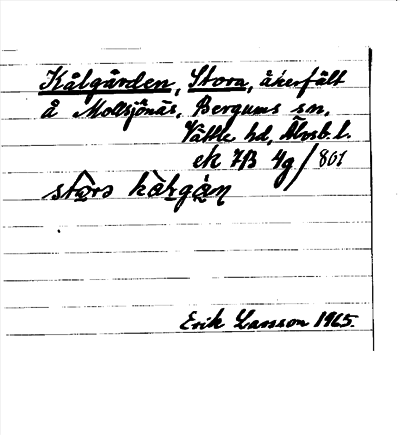 Kålgården, Stora, åkerfält
å Mollsjönäs, Bergums sn,
Vättle hd, Älvsb. l.
ek 7B 4g/801
Erik Larsson 1965.